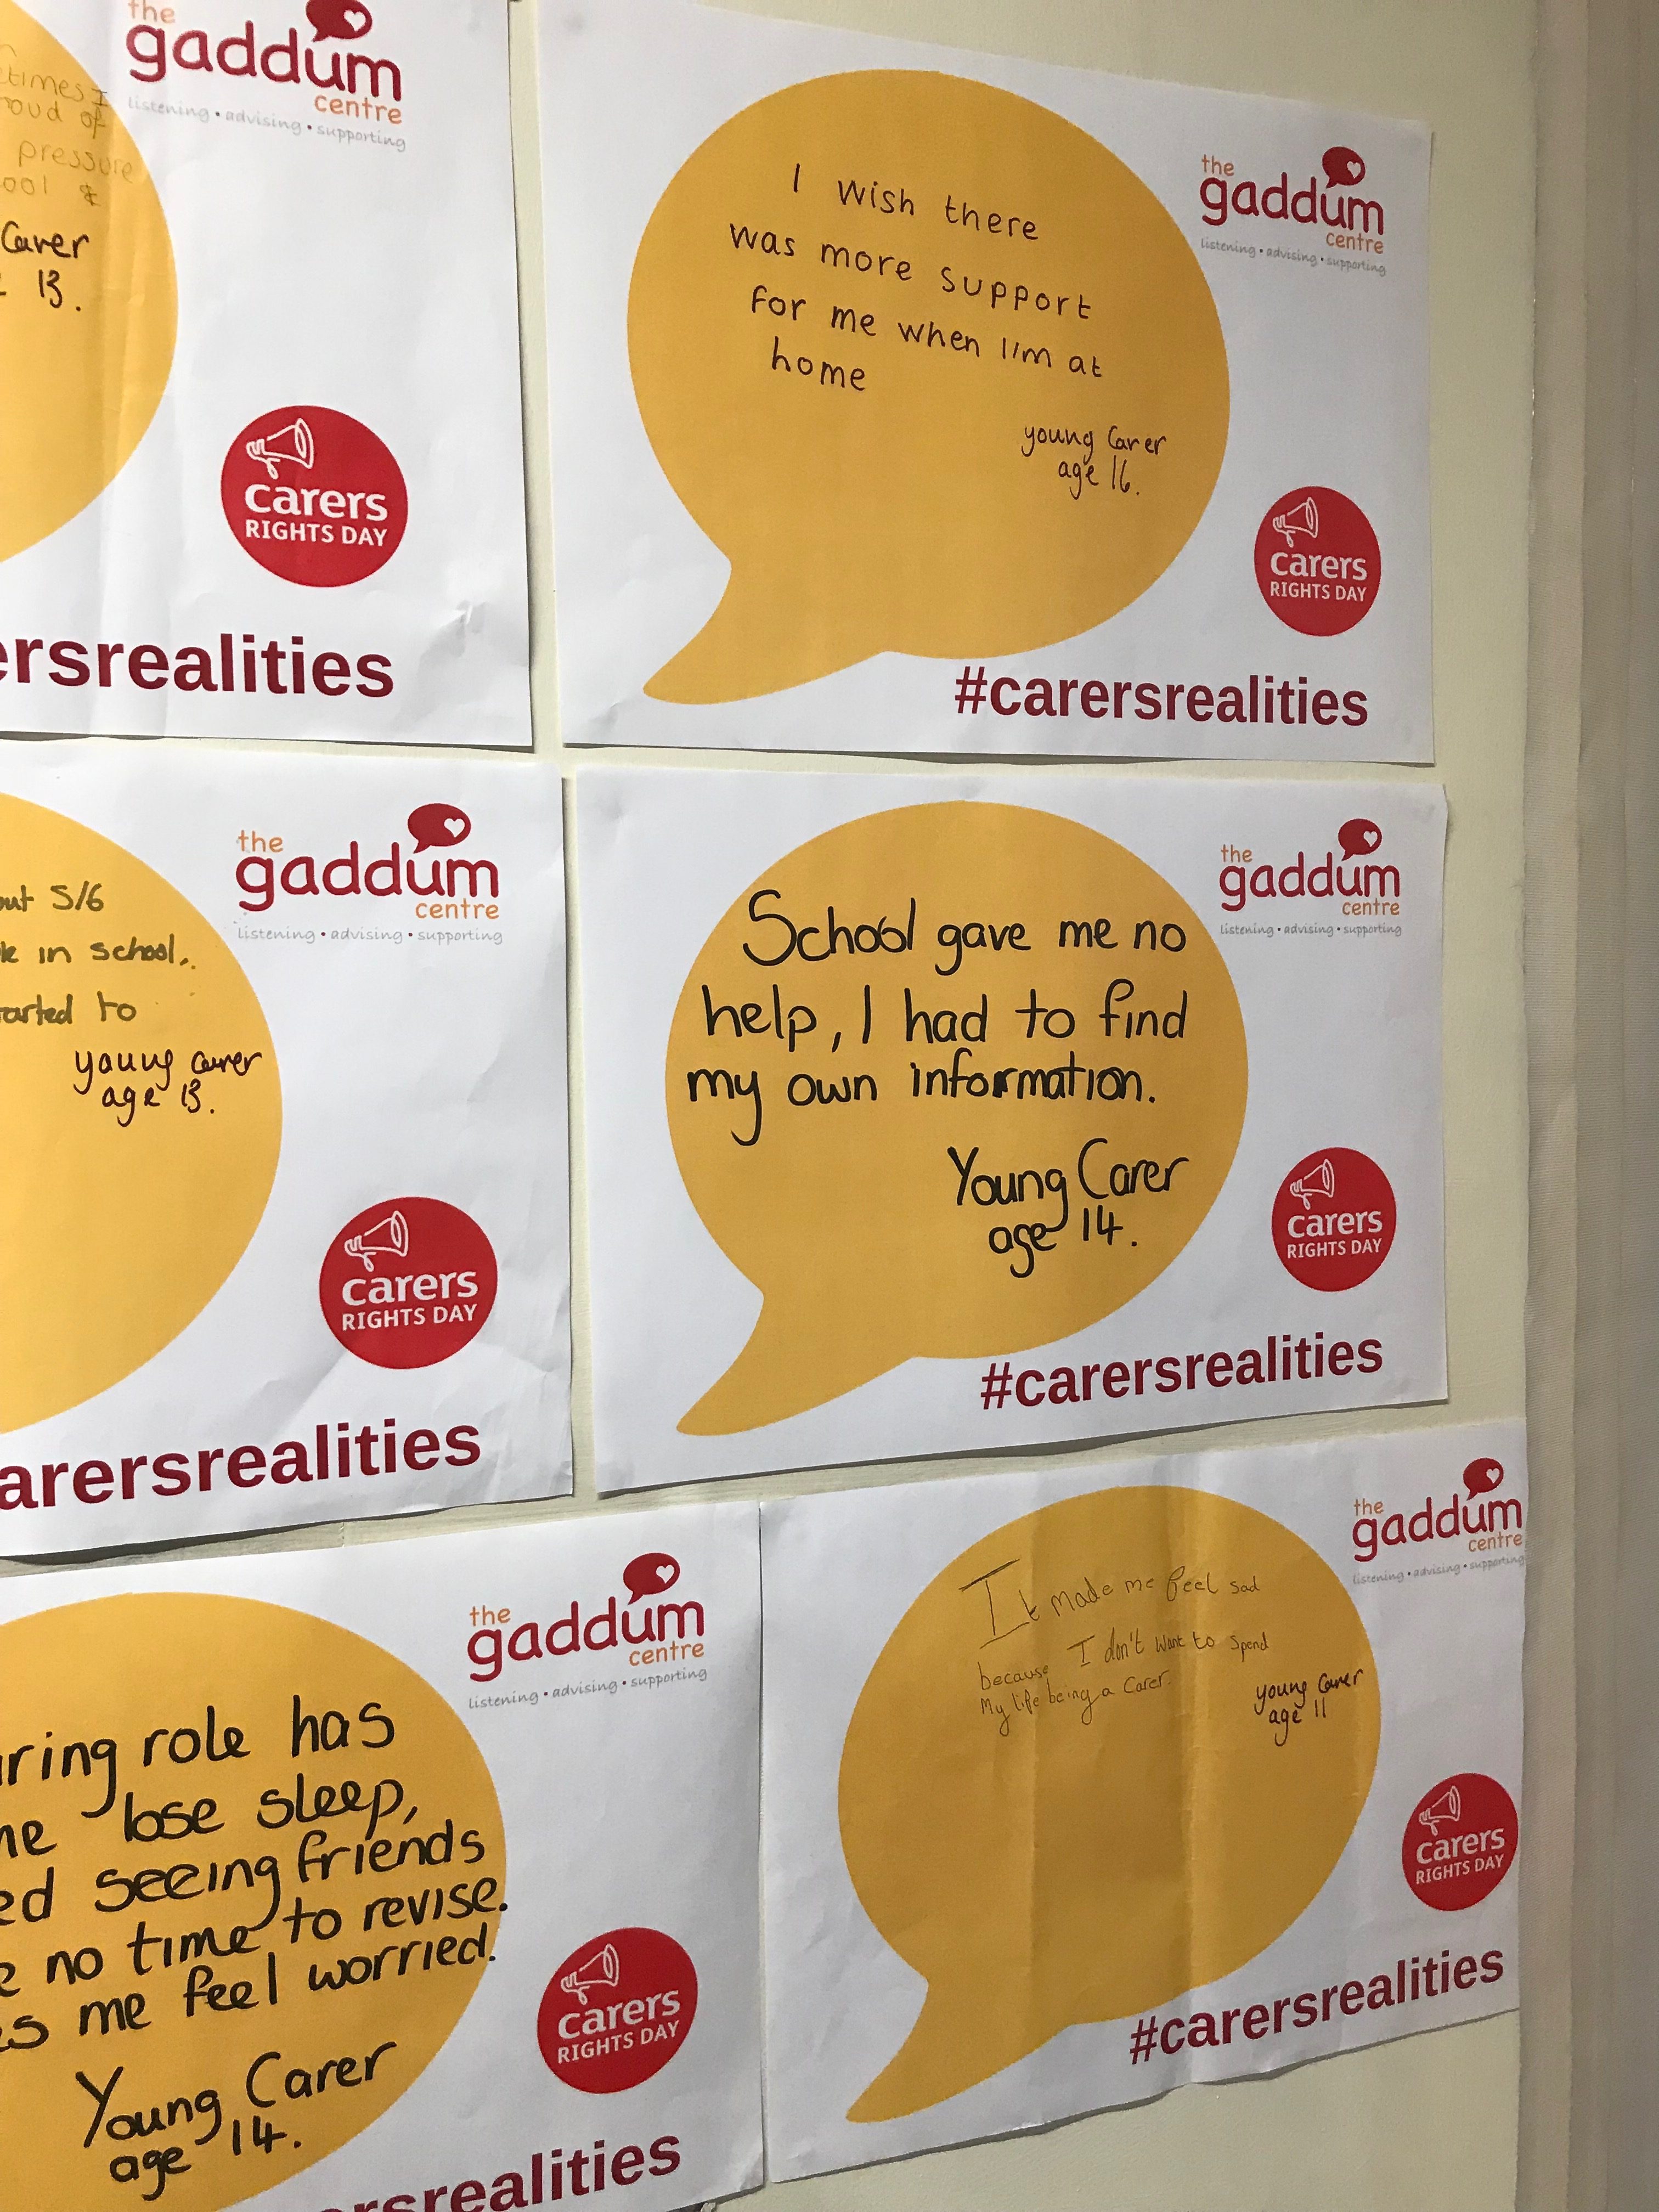 the
gaddum
centre
listening • advising • supporting
pressure
Carer
13.
carers
RIGHTS DAY
ersrealities
I wish there
was more support
for me when I'm at
home
young Carer
age 16.
the
gaddum
centre
listening • advising • supporting
carers
RIGHTS DAY
#carersrealities
5/6
in school,
to
young carer
age 13.
the
gaddum
centre
listening • advising • supporting
carers
RIGHTS DAY
arersrealities
School gave me no
help, I had to find
my own information.
Young Carer
age 14.
the
gaddum
centre
listening • advising • supporting
carers
RIGHTS DAY
#carersrealities
ring role has
lose sleep,
ed seeing friends
no time to revise.
me feel worried.
Young Carer
age 14.
the
gaddum
centre
listening • advising • supporting
carers
RIGHTS DAY
ersrealities
It made me feel sad
because I don't want to spend
My life being a Carer.
young Carer
age 11
the
gaddum
centre
listening • advising • supporting
carers
RIGHTS DAY
#carersrealities